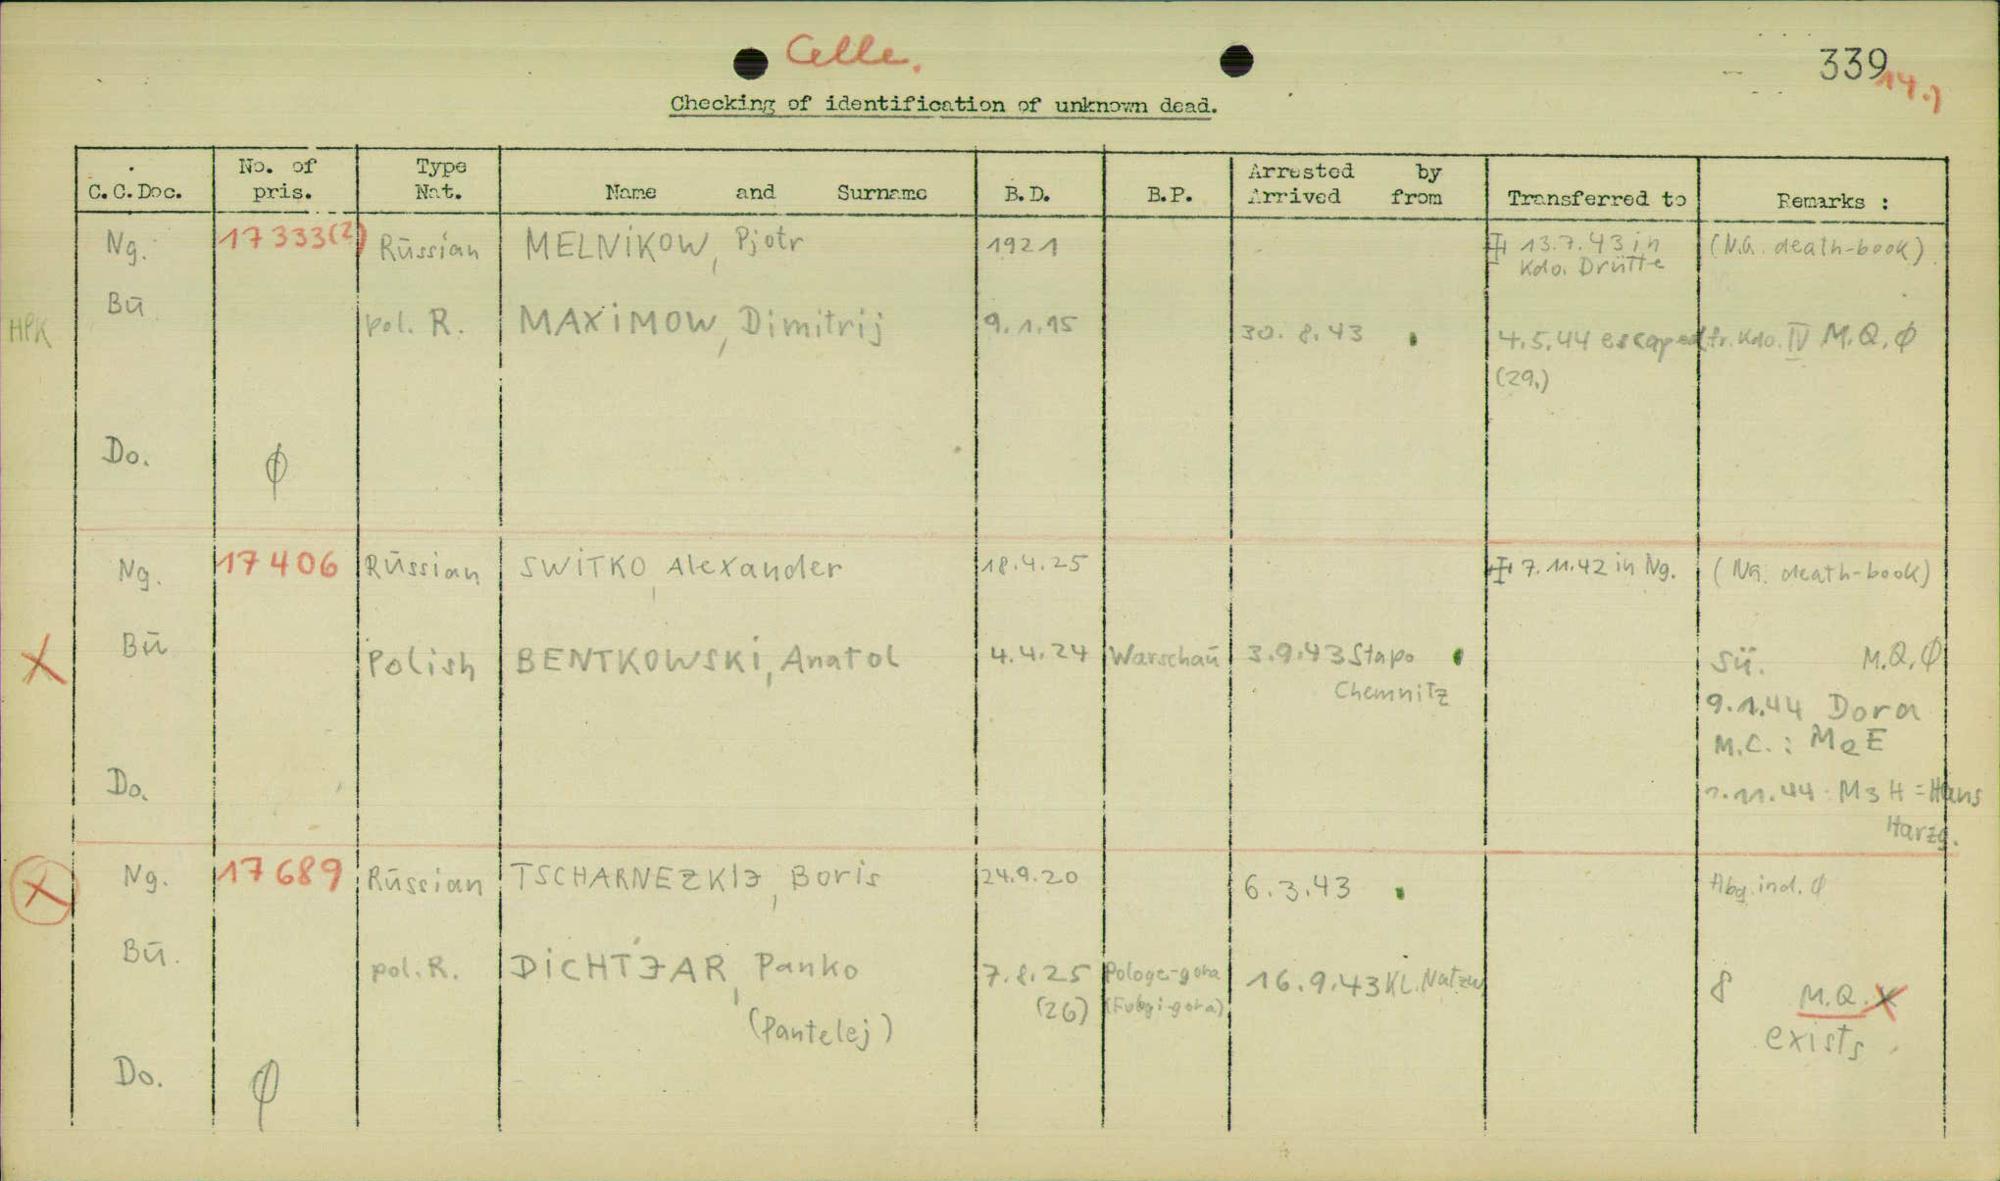 Celle.
339
14.)
Checking of identification of unknown dead.
C.C.Doc. No. of pris. Type Nat. Name and Surname B.D. B.P. Arrested by Arrived from Transferred to Remarks :
Ng. 17333(2) Rūssian MELNiKOW, Pjotr 1921 13.7.43 in (N.G. death-book)
Kdo. Drütte
HPK Bū pol. R. MAXiMOW, Dimitrij 9.1.15 30. 8.43 4.5.44 escaped fr. Kdo. IV M.Q. Ø
(29.)
Do. Ø
Ng. 17406 Rūssian SWiTKO, Alexander 18.4.25 7.11.42 in Ng. (Ng. death-book)
X Bū Polish BENTKOWSKi, Anatol 4.4.24 Warschaū 3.9.43 Stapo Sü. M.Q. Ø
Chemnitz
9.1.44 Dora
M.C. : MeE
Do. .11.44 M3H = Hans
Harzg.
X Ng. 17689 Rūssian TSCHARNEZKIJ, Boris 24.9.20 6.3.43 Abg. ind. Ø
Bū. pol. R. DiCHTJAR, Panko 7.8.25 Pologe-gora 16.9.43 KL. Natzw. 8 M.Q. X
(Pantelej) (26) exists
Do. Ø